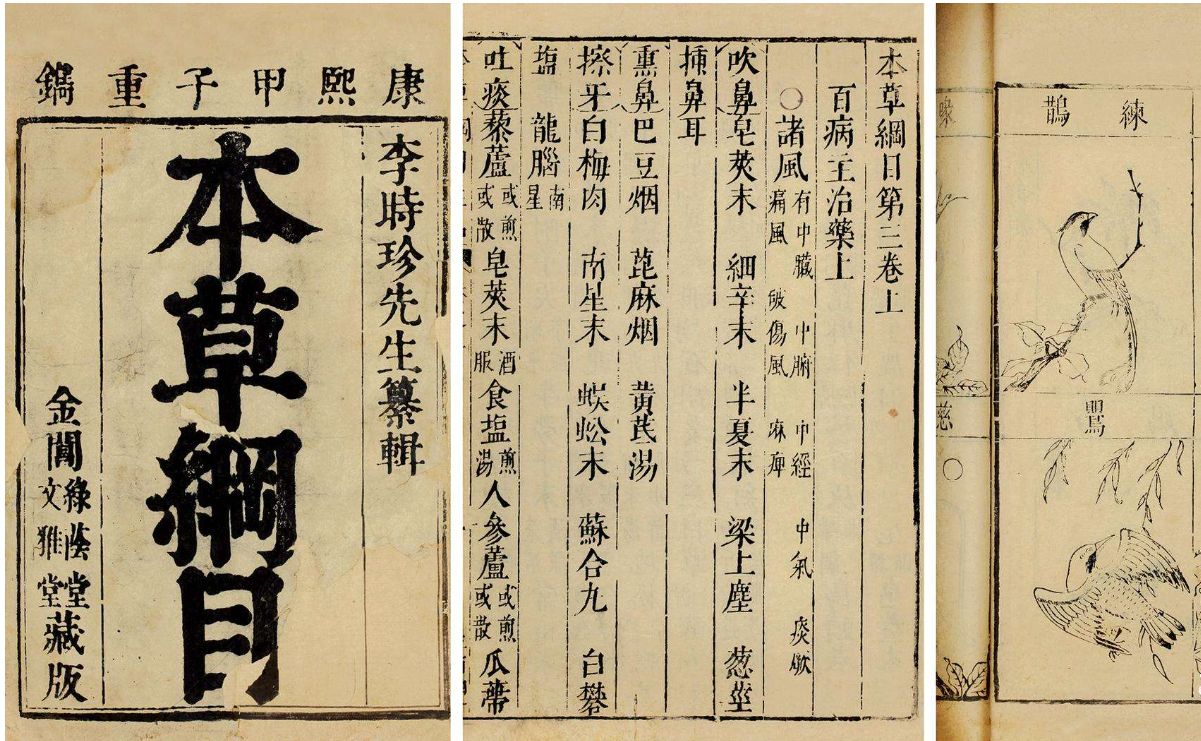 康熙甲子重鐫
李時珍先生纂輯
本草綱目
金閶綠蔭堂文雅堂藏版
本草綱目第三卷上
百病主治藥上
○諸風有中臟 中腑 中經 中氣 痰厥痛風 破傷風 麻痺
吹鼻皂莢末 細辛末 半夏末 梁上塵 葱莖
插鼻耳
熏鼻巴豆烟 蓖麻烟 黃芪湯
擦牙白梅肉 南星末 蜈蚣末 蘇合丸 白礬
塩 龍腦南星
吐痰藜蘆或煎或散皂莢末酒服食塩煎湯人參蘆或煎或散瓜蒂
練鵲
鸎